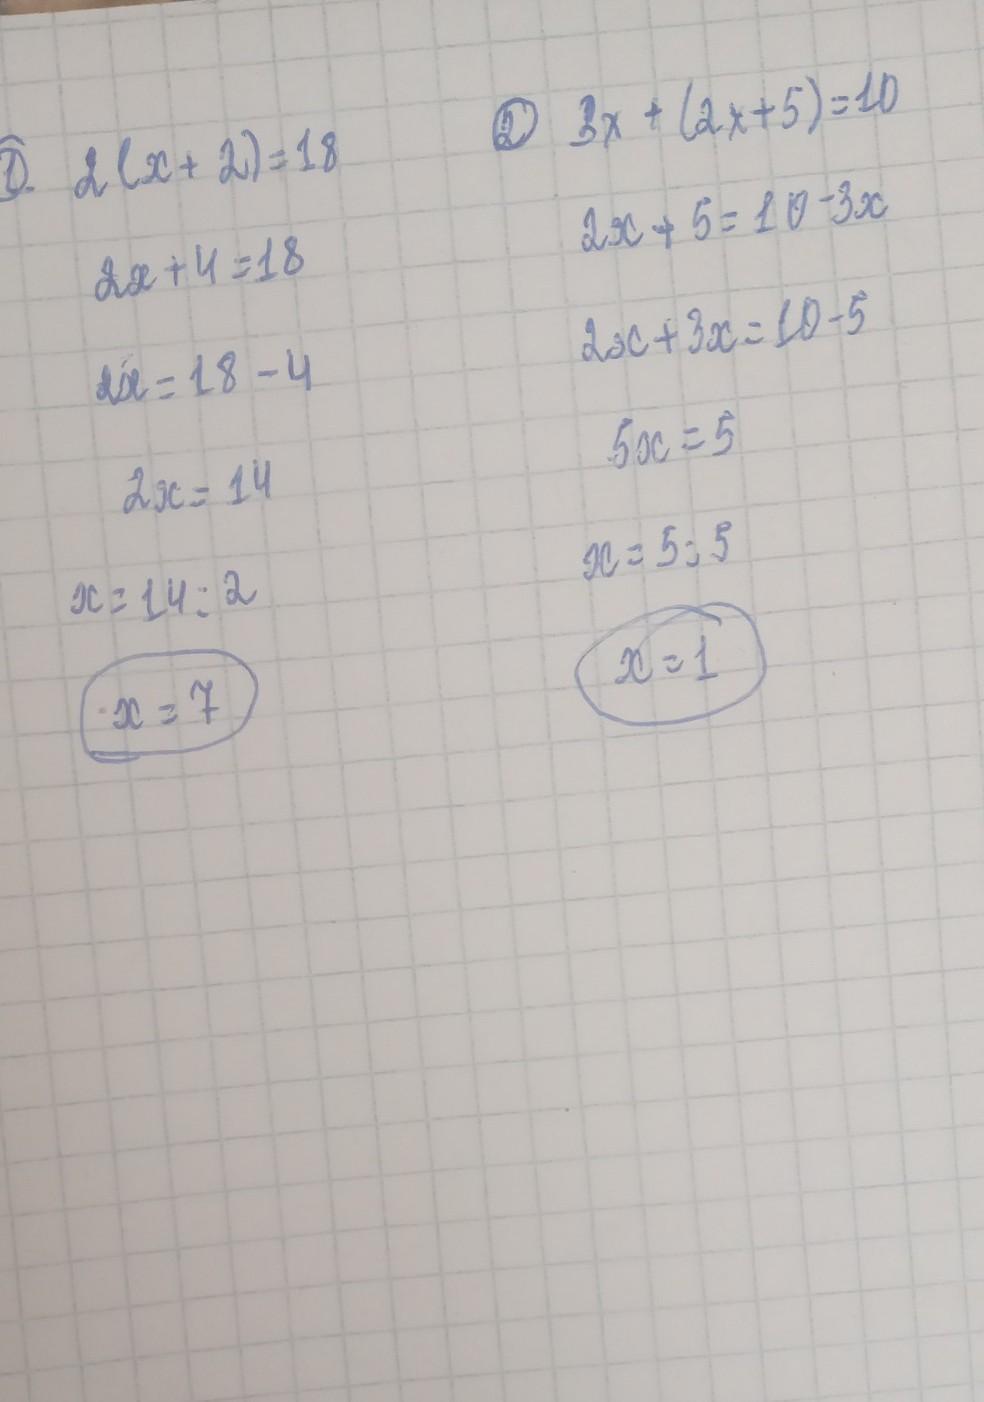 1. 2(x+2)=18
2x+4=18
2x=18-4
2x=14
x=14:2
x=7
2 3x+(2x+5)=10
2x+5=10-3x
2x+3x=10-5
5x=5
x=5:5
x=1